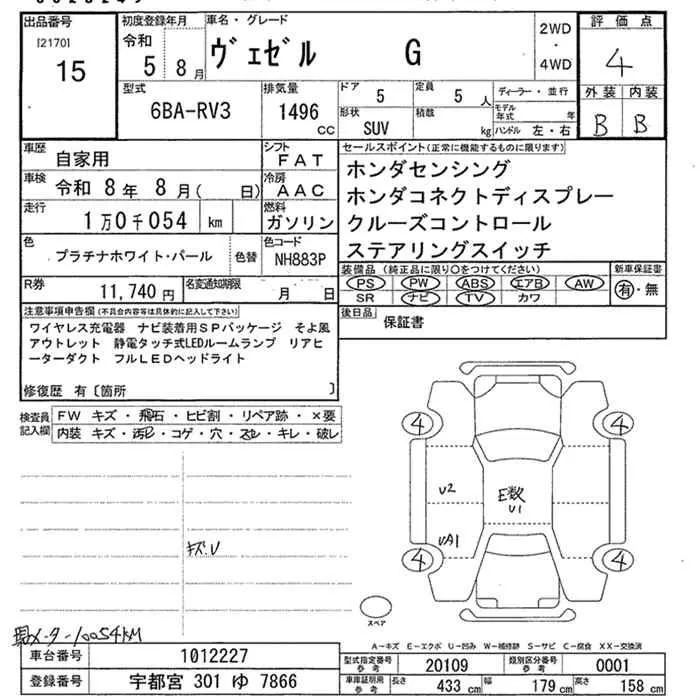 出品番号
[2170]
15
初度登録年月
令和
5 8月
車名・グレード
ヴェゼル G
2WD
・
4WD
評価点
4
外装 内装
B B
型式
6BA-RV3
排気量
1496 cc
ドア
5
定員
5 人
形状
SUV
積載
kg
ディーラー・並行
モデル年式 年
ハンドル 左・右
車歴
自家用
シフト
FAT
車検
令和 8年 8月( 日)
冷房
AAC
走行
1万0千054 km
燃料
ガソリン
色
プラチナホワイト・パール
色替
色コード
NH883P
R券
11,740円
名変通知期限
月 日
セールスポイント(正常に機能するものに限ります)
ホンダセンシング
ホンダコネクトディスプレー
クルーズコントロール
ステアリングスイッチ
装備品 (純正品に限り○をつけてください)
PS PW ABS エアB AW
SR ナビ TV カワ
新車保証書
有・無
後日品
保証書
注意事項申告欄(不具合内容等は具体的に記入して下さい)
ワイヤレス充電器 ナビ装着用SPパッケージ そよ風
アウトレット 静電タッチ式LEDルームランプ リアヒ
ーターダクト フルLEDヘッドライト
修復歴 有〔箇所 〕
検査員記入欄
FW キズ・飛石・ヒビ割・リペア跡・×要
内装 キズ・汚れ・コゲ・穴・スレ・キレ・破レ
キズ.U
4 4
U2
E数
U1
UA1
4 4
スペア
メーター10054KM
A-キズ E-エクボ U-凹み W-補修跡 S-サビ C-腐食 XX-交換済
車台番号
1012227
登録番号
宇都宮 301 ゆ 7866
型式指定番号 参考
20109
類別区分番号 参考
0001
車庫証明用 参考
長さ 433 cm
幅 179 cm
高さ 158 cm